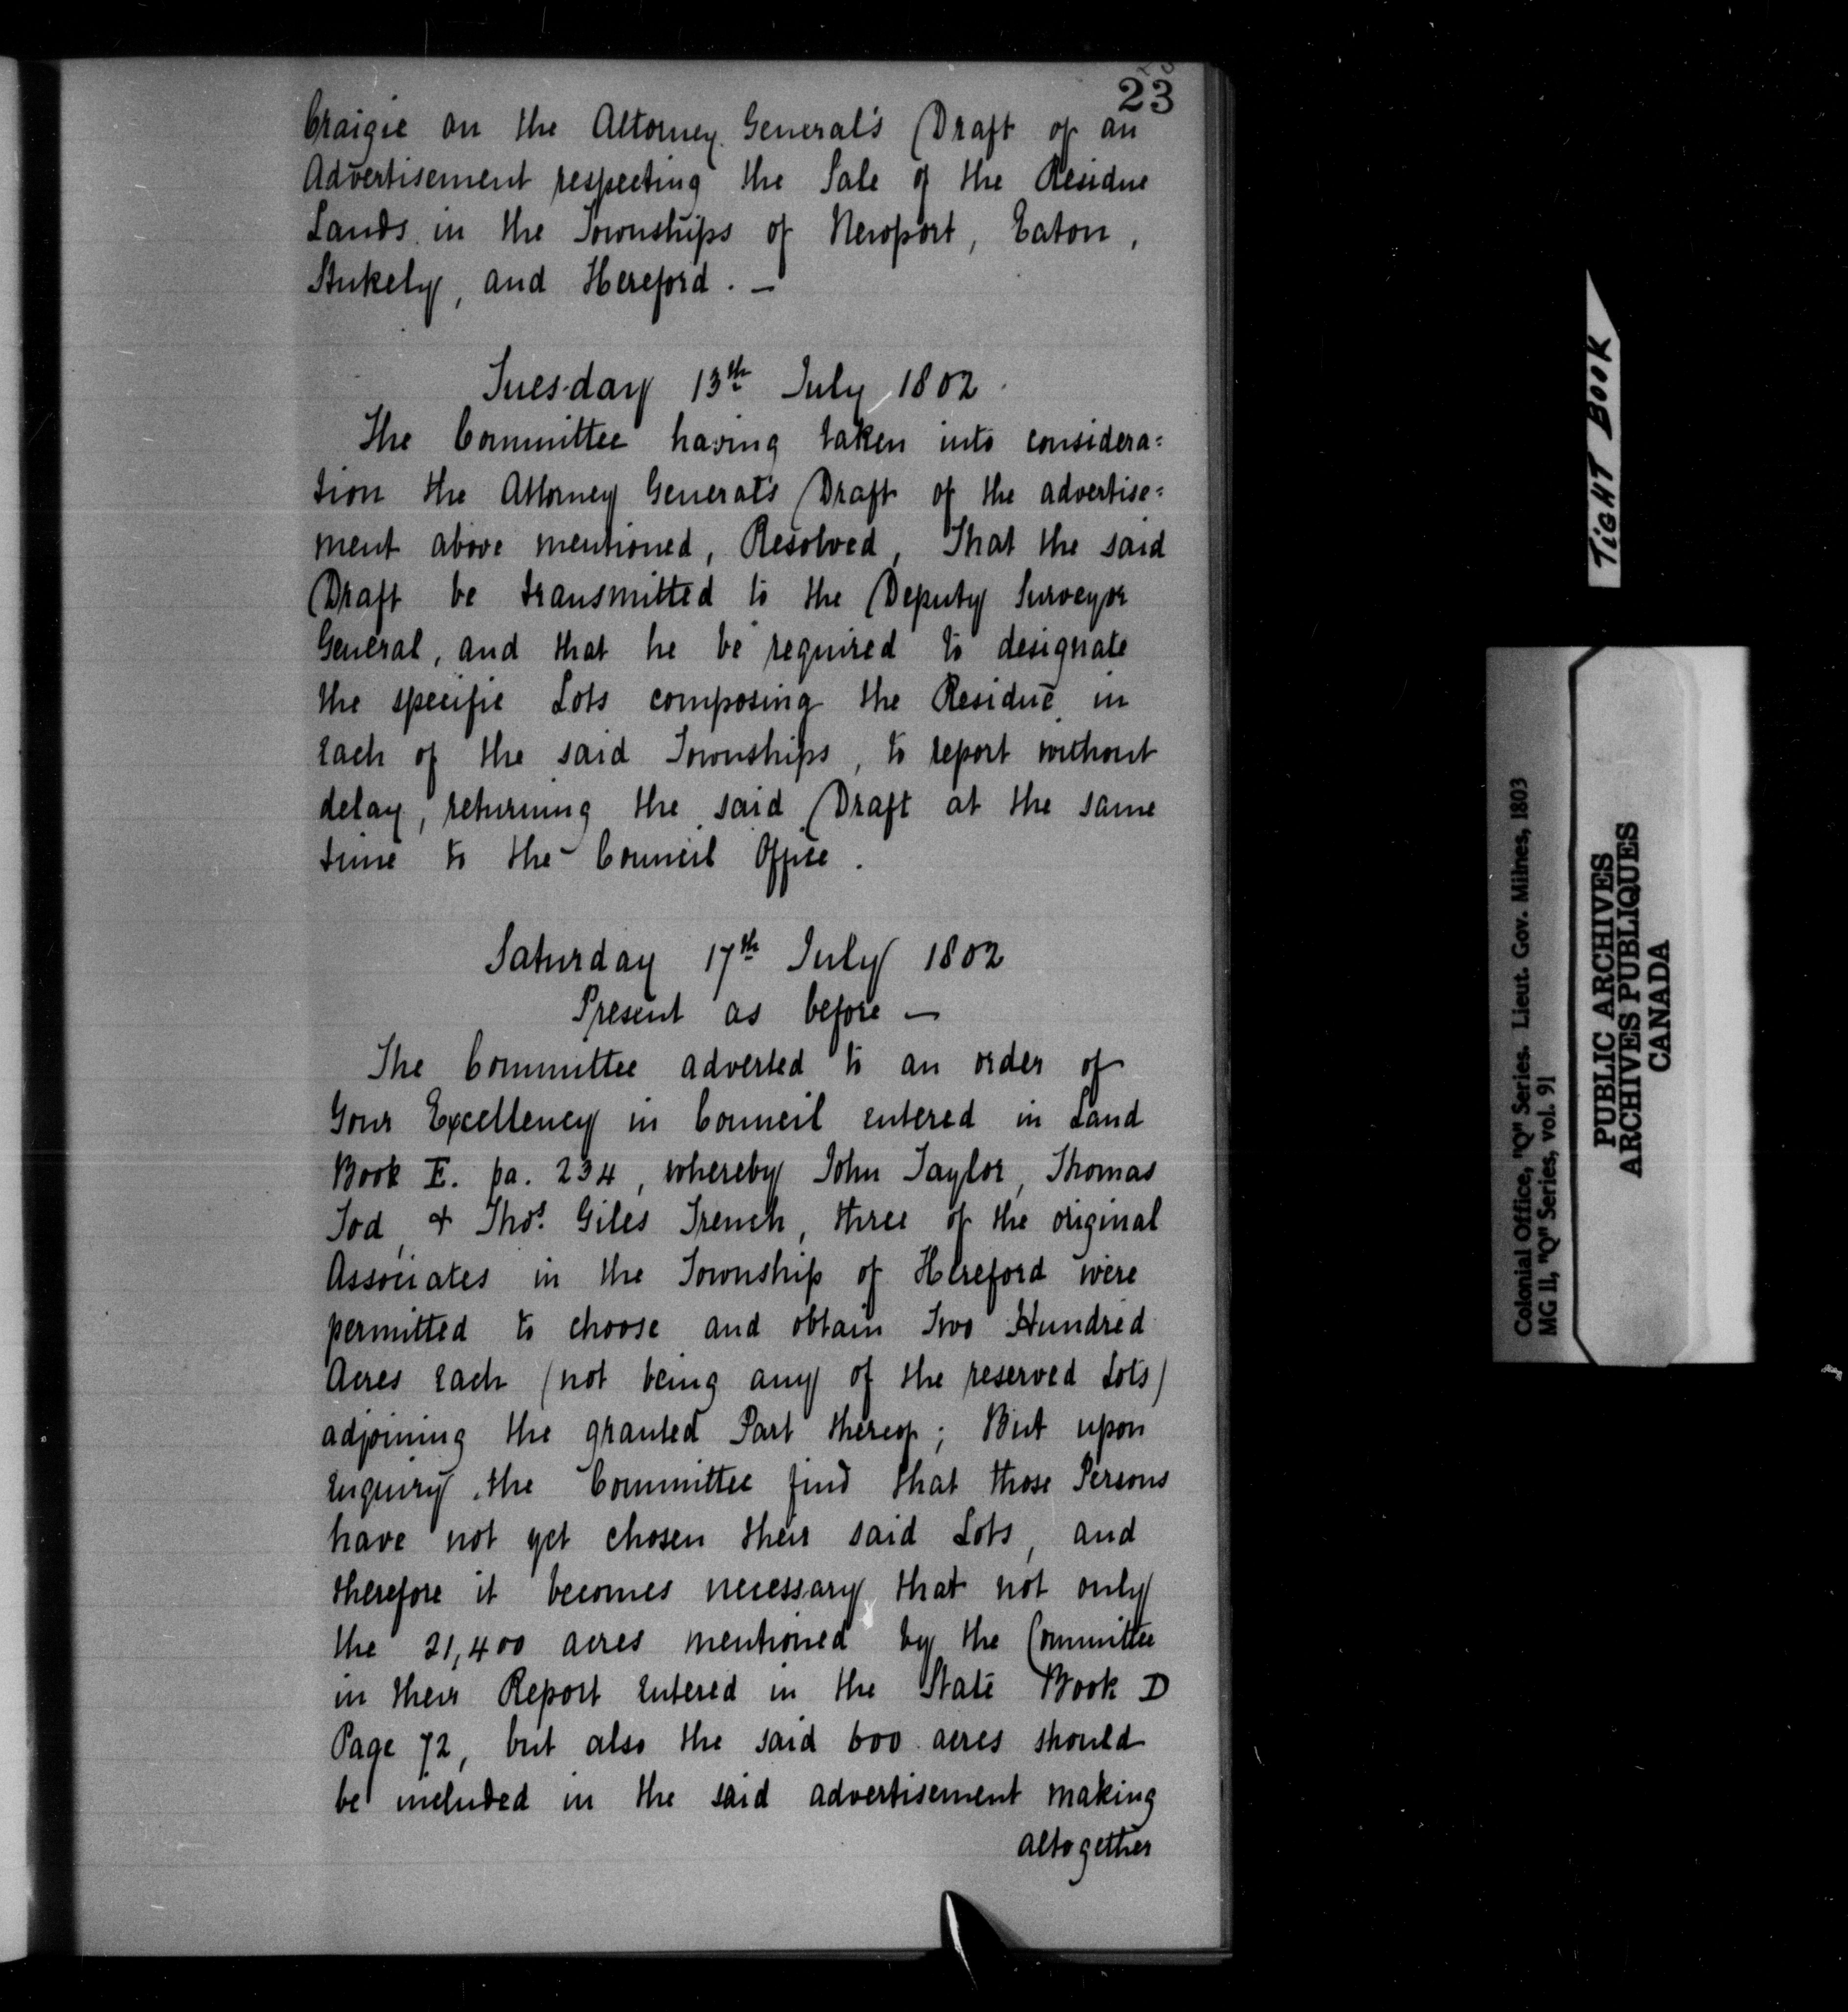 23
Craigie on the Attorney General's Draft of an
Advertisement respecting the Sale of the Residue
Lands in the Townships of Newport, Eaton,
Stukely, and Hereford. —
Tuesday 13th July 1802.
The Committee having taken into considera=
tion the Attorney General's Draft of the advertise=
ment above mentioned, Resolved, That the said
Draft be transmitted to the Deputy Surveyor
General, and that he be required to designate
the specific Lots composing the Residue in
each of the said Townships, to report without
delay, returning the said Draft at the same
time to the Council Office.
Saturday 17th July 1802
Present as before —
The Committee adverted to an order of
Your Excellency in Council entered in Land
Book E. pa. 234, whereby John Taylor, Thomas
Tod, & Thos. Giles Trench, three of the original
Associates in the Township of Hereford were
permitted to choose and obtain Two Hundred
Acres each (not being any of the reserved Lots)
adjoining the granted Part thereof; But upon
enquiry the Committee find that those Persons
have not yet chosen their said Lots, and
therefore it becomes necessary that not only
the 21,400 acres mentioned by the Committee
in their Report entered in the State Book D
Page 72, but also the said 600 acres should
be included in the said advertisement making
altogether
TIGHT BOOK
Colonial Office, "Q" Series. Lieut. Gov. Milnes, 1803
MG 11, "Q" Series, vol. 91
PUBLIC ARCHIVES
ARCHIVES PUBLIQUES
CANADA